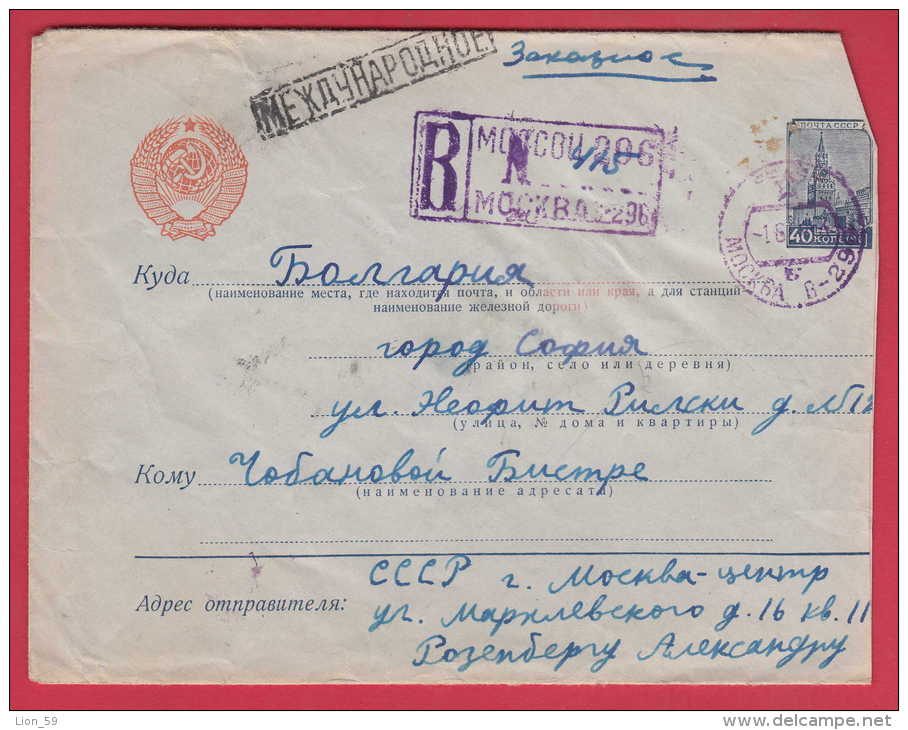 МЕЖДУНАРОДНОЕ
Заказное
ПОЧТА СССР
R MOSCOU 296
N 415
МОСКВА 296
40 КОПЕЕК
МОСКВА В-29
Куда Болгария
(наименование места, где находится почта, и области или края, а для станций
наименование железной дороги)
город София
(район, село или деревня)
ул. Неофит Рилски д. №12
(улица, № дома и квартиры)
Кому Чобановой Бистре
(наименование адресата)
СССР г. Москва-центр
Адрес отправителя: ул. Мархлевского д. 16 кв. 11
Розенбергу Александру
Lion_59
delcampe.net